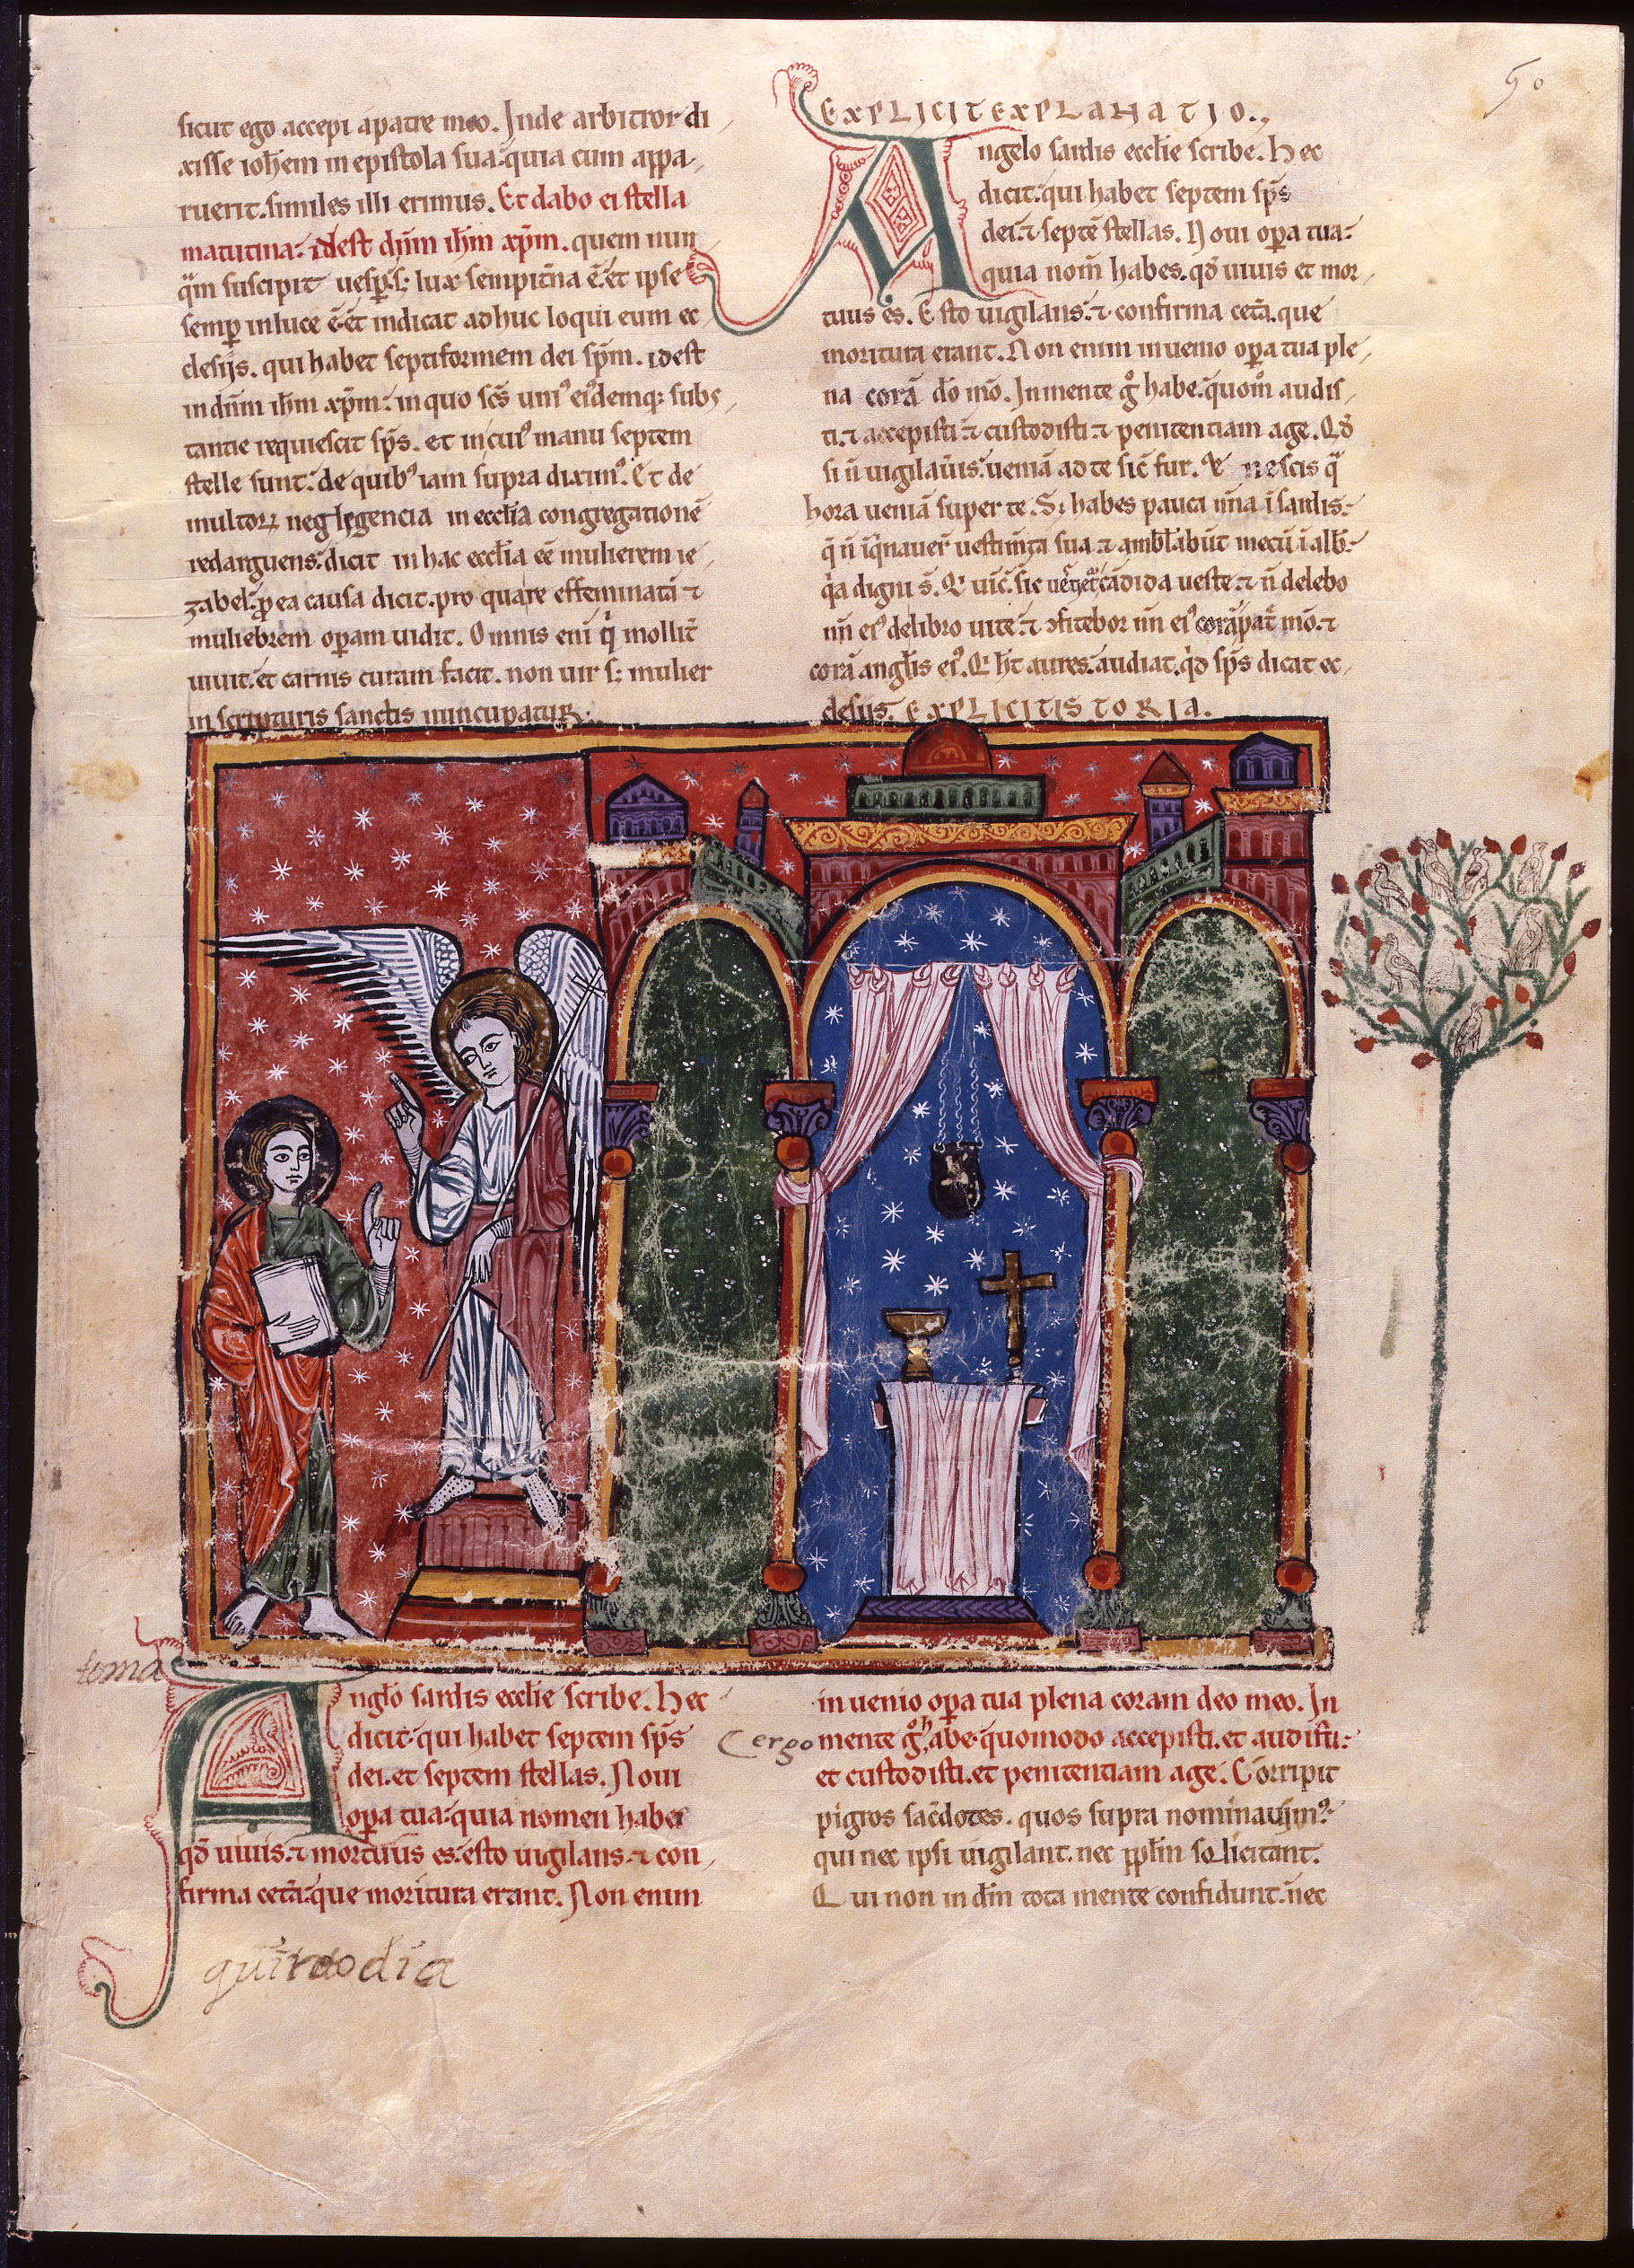 sicut ego accepi apatre meo. Inde arbitror di
xisse ioh̄em in epistola sua: quia cum appa
ruerit. similes illi erimus. Et dabo ei stella
matutina: idest dn̄m ih̄m xp̄m. quem nun
q̄m suscipit uesp̄. s; lux sempit̄na ē. et ipse
semp̄ inluce ē. et indicat adhuc loqui eum ec
clesijs. qui habet septiformem dei sp̄m. idest
in dn̄m ih̄m xp̄m: in quo sc̄s uniꝰ eiꝰdemq; subs
tantie requiescit sp̄s. et in cuiꝰ manu septem
stelle sunt: de quibꝰ iam supra diximꝰ. Et de
multoꝝ neglegencia in eccl̄ia congregationē
redarguens: dicit in hac eccl̄ia eē mulierem ie
zabel: p̱ ea causa dicit. pro quare effeminatā ⁊
muliebrem op̄am uidit. Omnis eni q̄ mollit̄
uiuit. et carnis curam facit. non uir s; mulier
in scripturis sanctis nuncupatur.
EXPLICIT EXPLANATIO.
Angelo sardis eccl̄ie scribe. Hec
dicit: qui habet septem sp̄s
dei. ⁊ septē stellas. Noui op̄a tua:
quia nom̄ habes. qd̄ uiuis et mor
tuus es. Esto uigilans: ⁊ confirma cet̄a. que
moritura erant. Non enim inuenio op̄a tua ple
na corā dō mō. In mente g̊ habe. quom̊ audis
ti. ⁊ accepisti ⁊ custodisti ⁊ penitentiam age. Qd̄
si n̄ uigilau̅is: ueniā ad te sic̄ fur. & nescis q̄
hora ueniā super te. S; habes pauca nn̄a ī sardis:
q̄ n̄ īq̄nauer̄ uestim̄ta sua ⁊ amb̄lab̄ūt mecū ī alb̄:
q̄a digni s̄. Q̄ uic̄. sic cādida ueste. ⁊ n̄ delebo
nn̄ eiꝰ delibro uite. ⁊ ↄfitebor nn̄ eiꝰ corā pat̄ mō. ⁊
corā angl̄is eiꝰ. Q̄ h̄t aures. audiat. q̄d sp̄s dicat ec
clesijs. EXPLICIT ISTORIA.
toma
Angl̄o sardis eccl̄ie scribe. Hec
dicit: qui habet septem sp̄s
dei. et septem stellas. Noui
op̄a tua: quia nomen habes
qd̄ uiuis. ⁊ mortuus es: esto uigilans. ⁊ con
firma cet̄a: que moritura erant. Non enim
guirdodia
inuenio op̄a tua plena coram deo meo. In
ergo
mente g̊ habe. quomodo accepisti. et audisti:
et custodisti. et penitentiam age. Corripit
pigros sac̄dotes. quos supra nominauimꝰ:
qui nec ipsi uigilant. nec pp̄lm sollicitant.
Qui non in dn̄m tota mente confidunt. nec